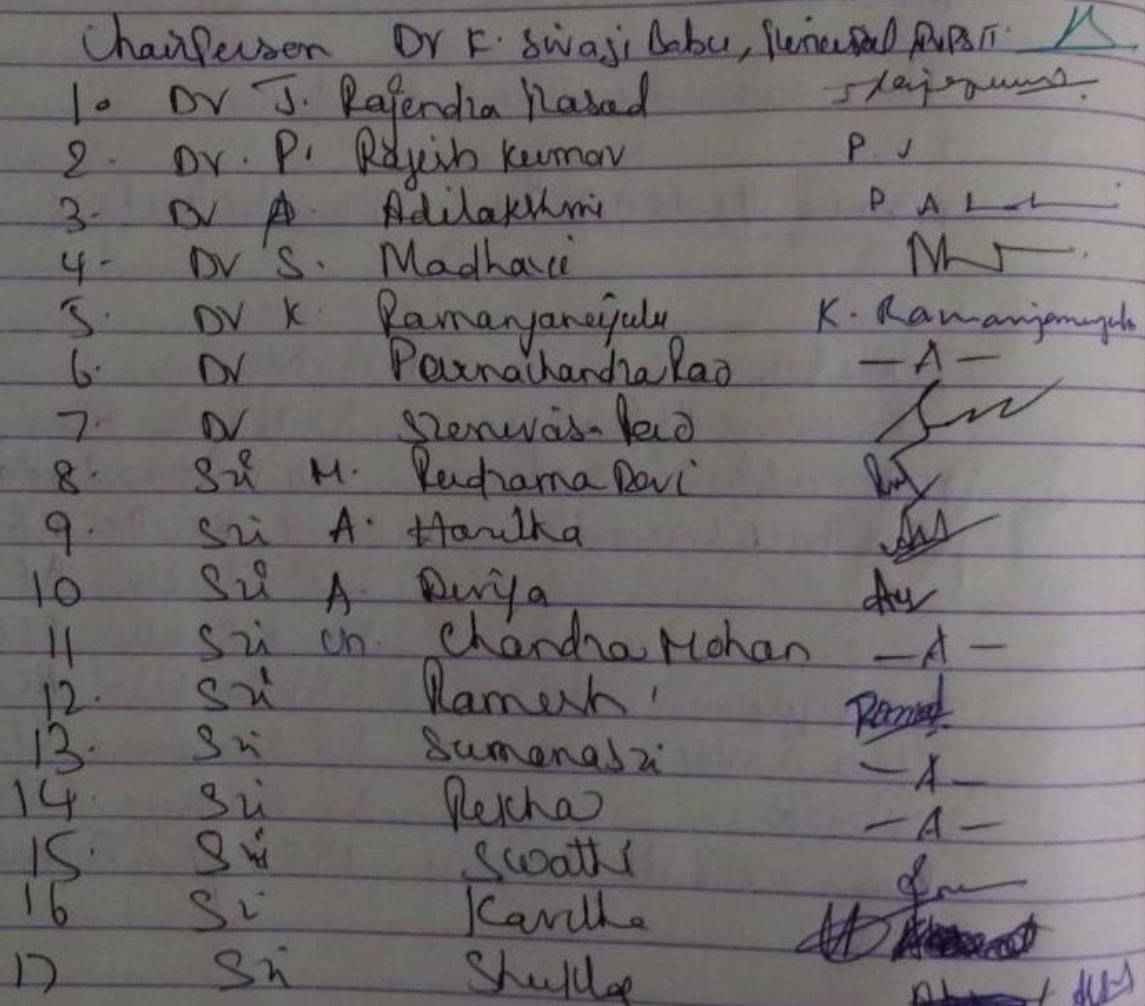 Chairperson Dr K. Sivaji Babu, Principal
1. Dr J. Rajendra Prasad
2. Dr. P. Rajesh Kumar P. J
3- Dr A. Adilakshmi P. A
4- Dr S. Madhavi
5. Dr K Ramanjaneyulu K. Ramanjaneyulu
6. Dr Purnachandra Rao - A -
7. Dr Srenivasa Rao
8. Sri M. Rudrama Devi
9. Sri A. Haritha
10 Sri A. Divya
11 Sri Ch. Chandra Mohan - A -
12. Sri Ramesh
13. Sri Sumanasri - A -
14. Sri Rekha - A -
15. Sri Swathi
16 Sri Kavitha
17 Sri